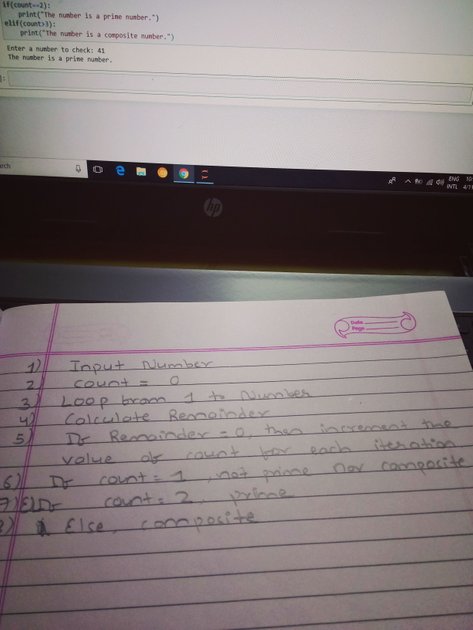 if(count==2):
print("The number is a prime number.")
elif(count>3):
print("The number is a composite number.")
Enter a number to check: 41
The number is a prime number.
ENG
INTL
hp
Date
Page
1) Input Number
2) count = 0
3) Loop from 1 to Number
4) Calculate Remainder
5) If Remainder = 0, then increment the
value of count for each iteration
6) If count = 1, not prime nor composite
7) ElIf count = 2, prime
8) Else, composite